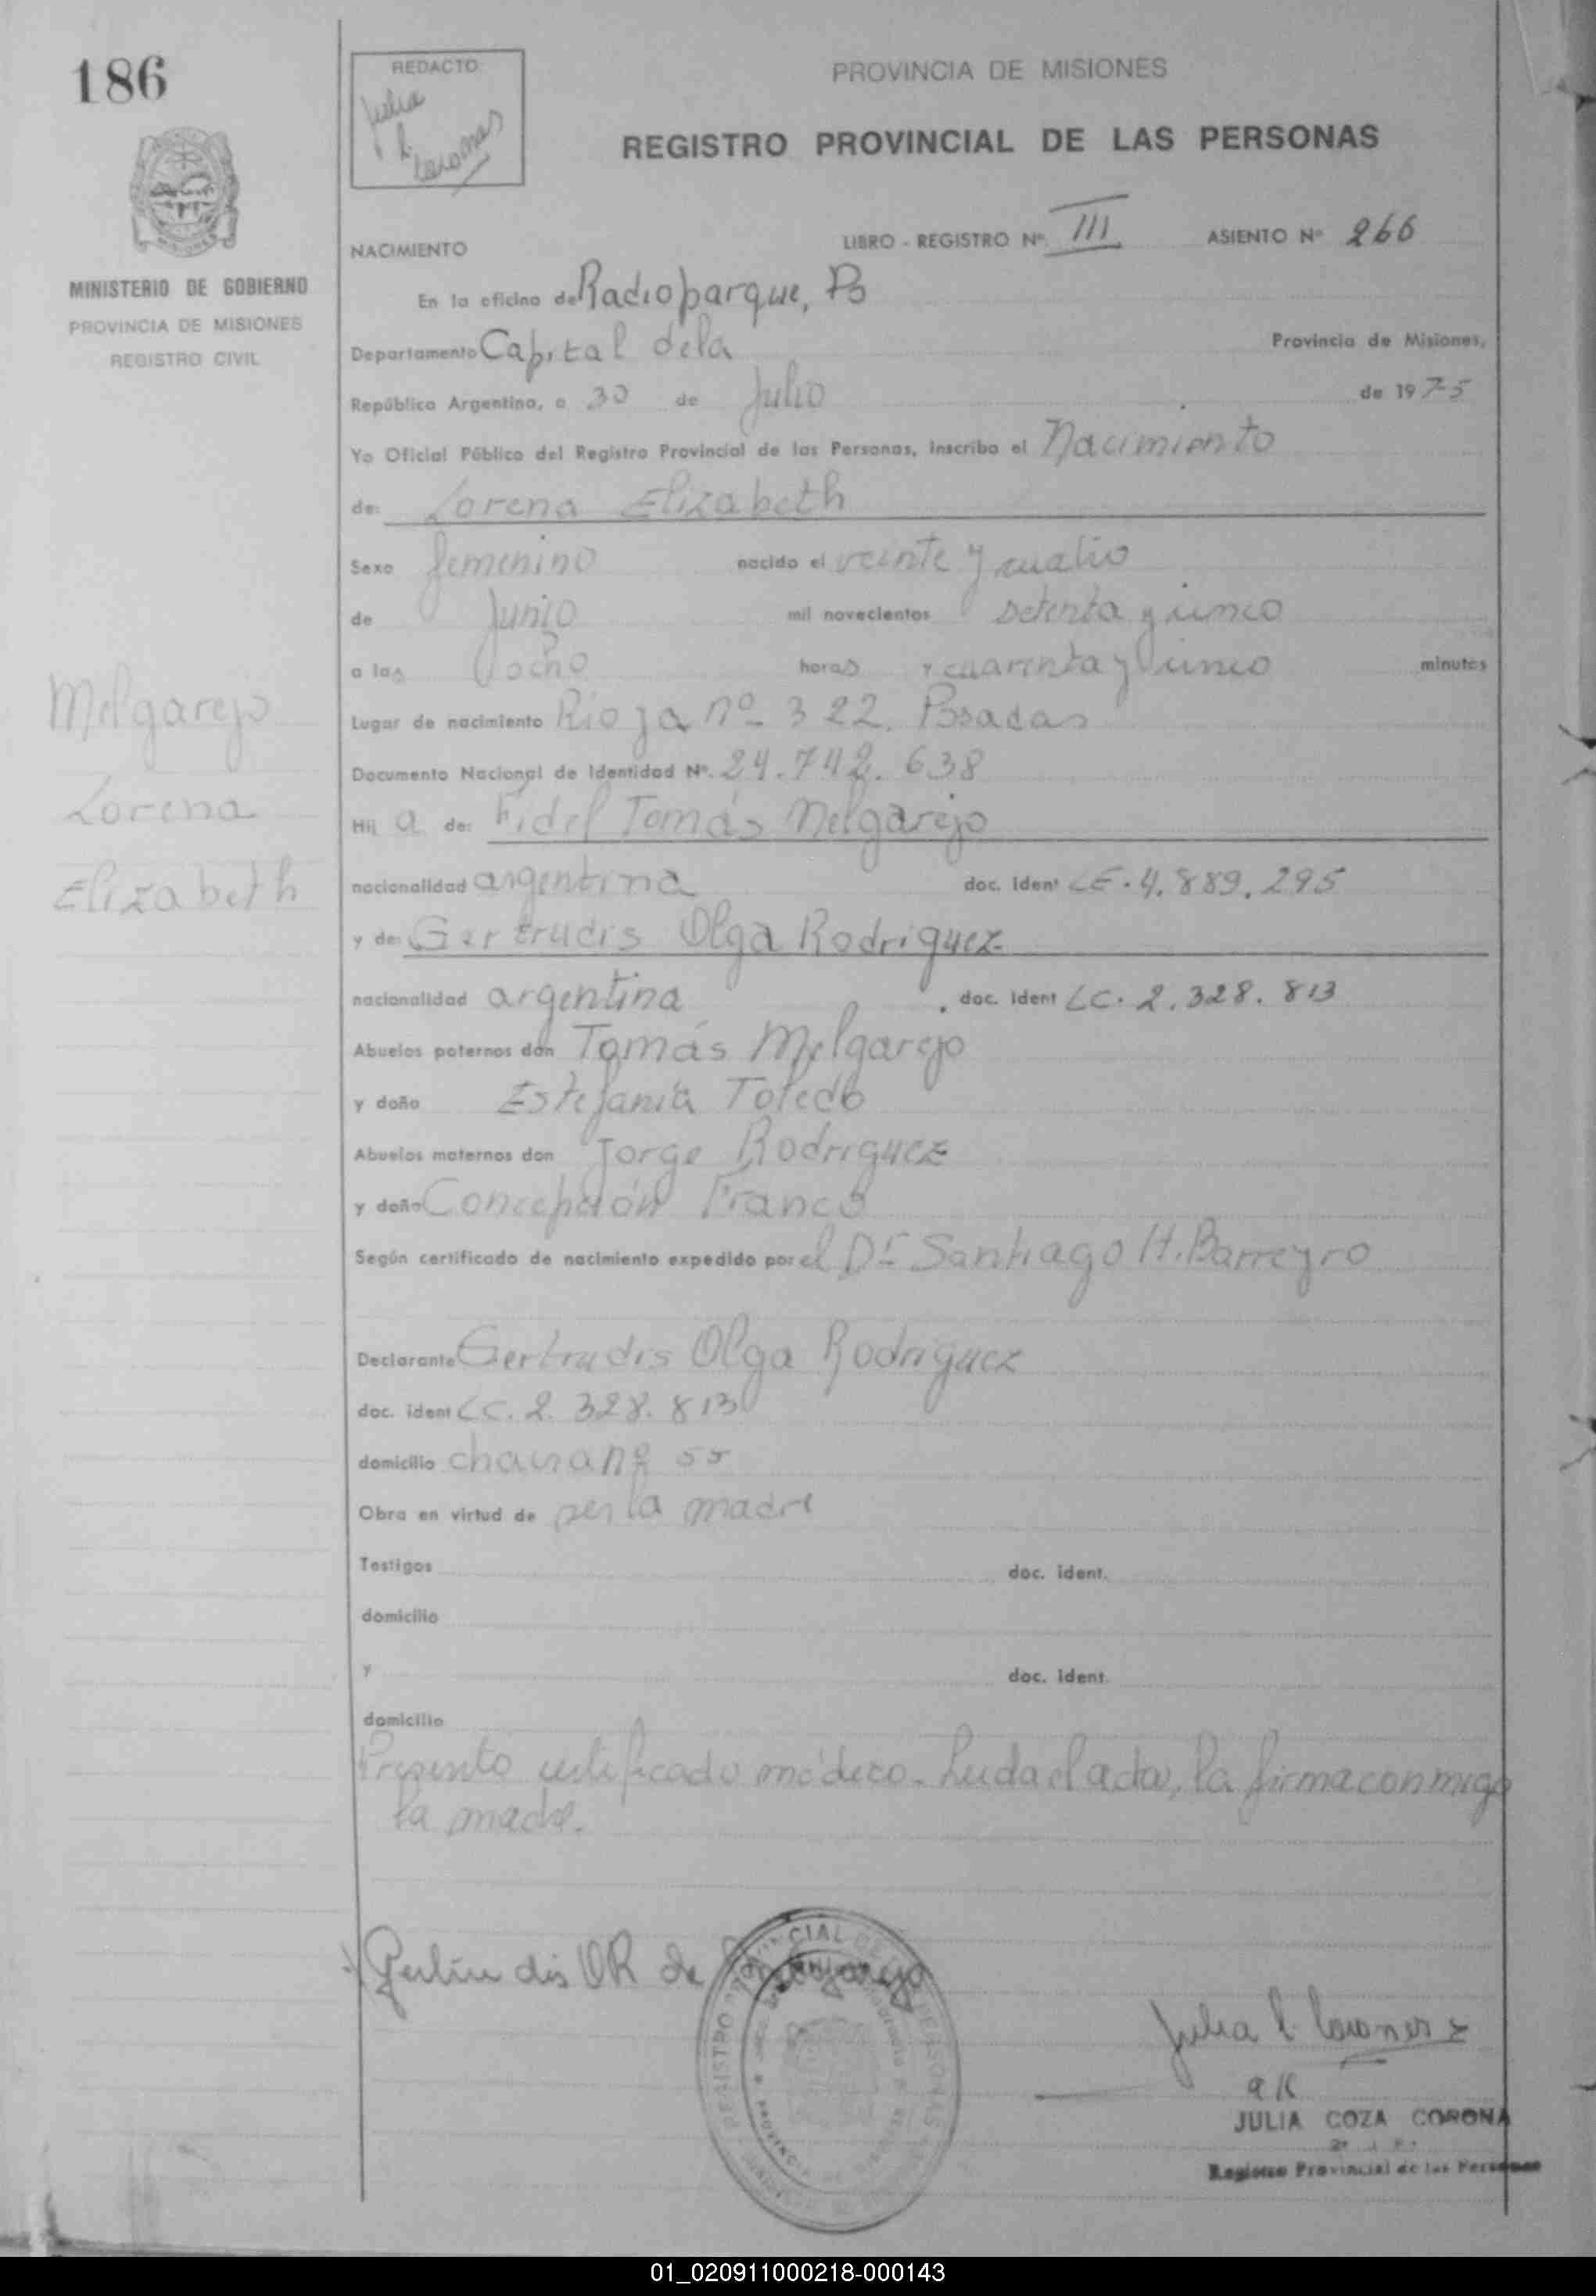 186
REDACTO
Julia
PROVINCIA DE MISIONES
REGISTRO PROVINCIAL DE LAS PERSONAS
MINISTERIO DE GOBIERNO
PROVINCIA DE MISIONES
REGISTRO CIVIL
NACIMIENTO
LIBRO - REGISTRO Nº III ASIENTO Nº 266
En la oficina de Radioparque, Ps
Departamento Capital dela Provincia de Misiones,
República Argentina, a 30 de Julio de 1975
Yo Oficial Público del Registro Provincial de las Personas, inscribo el Nacimiento
de: Lorena Elizabeth
Sexo femenino nacido el veinte y cuatro
de Junio mil novecientos setenta y cinco
a las ocho horas y cuarenta y cinco minutos
Lugar de nacimiento Rioja nº 322. Posadas
Documento Nacional de Identidad Nº. 24.742.638
Hij a de: Fidel Tomás Melgarejo
nacionalidad argentina doc. Ident LE. 4.889.295
y de: Gertrudis Olga Rodriguez
nacionalidad argentina doc. Ident LC. 2.328.813
Abuelos paternos don Tomás Melgarejo
y doña Estefanía Toledo
Abuelos maternos don Jorge Rodriguez
y doña Concepción Franco
Según certificado de nacimiento expedido por el Dr Santiago H. Barreyro
Declarante Gertrudis Olga Rodriguez
doc. ident LC. 2.328.813
domicilio chacra nº 55
Obra en virtud de ser la madre
Testigos doc. ident.
domicilio
y doc. ident.
domicilio
Presento certificado médico. Leida el acta, la firma conmigo
la madre.
Melgarejo
Lorena
Elizabeth
Gertrudis OR de Melgarejo
JULIA COZA CORONA
Registro Provincial de las Personas
01_020911000218-000143